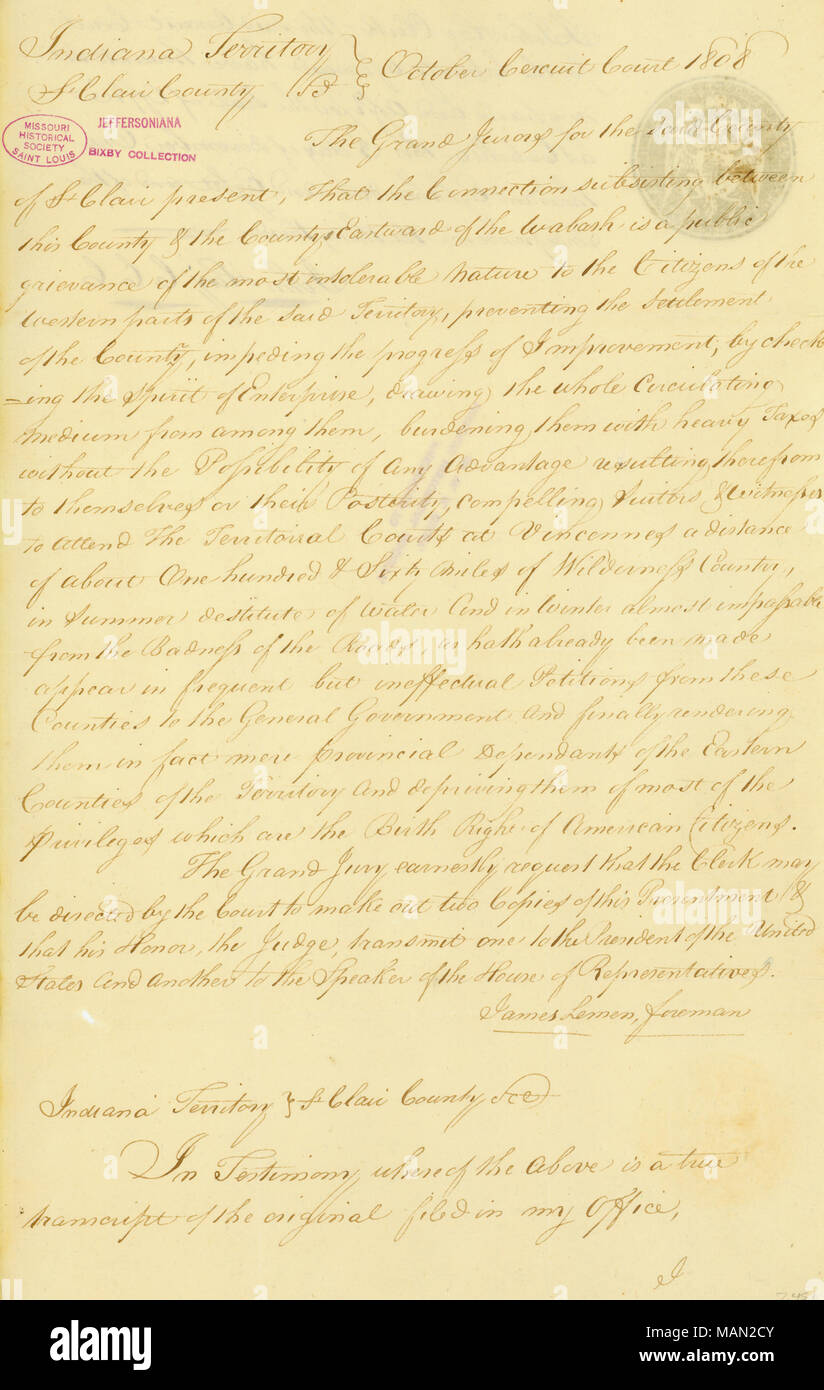 Indiana Territory } October Cercuit Court 1808
St Clair County Sct
MISSOURI
HISTORICAL
SOCIETY
SAINT LOUIS
JEFFERSONIANA
BIXBY COLLECTION
The Grand Jurors for the said County
of St Clair present, That the Connection subsisting between
this County & the Countys Eastward of the Wabash is a public
grievance of the most intolerable nature to the Citizens of the
Western parts of the said Territory, preventing the Settlement
of the County, impeding the progress of Improvement, by check
=ing the Spirit of Enterprise, drawing the whole Circulating
medium from among them, burdening them with heavy Taxes
without the Possibility of any Advantage resulting therefrom
to themselves or their Posterity, compelling Suitors & Witnesses
to attend The Territoiral Courts at Vincennes a distance
of about One hundred & Sixty miles of Wilderness Country,
in Summer destitute of water and in Winter almost impassable
from the Badness of the Roads, as hath already been made
appear in frequent but ineffectual Petitions from these
Counties to the General Government and finally rendering
them in fact mere provincial Dependants of the Eastern
Counties of the Territory and depriving them of most of the
Privileges which are the Birth Right of American Citizens.
The Grand Jury earnestly request that the Clerk may
be directed by the Court to make out two Copies of this Presentment &
that his Honor, the Judge, transmit one to the President of the United
States and another to the Speaker of the House of Representatives.
James Lemen, foreman
Indiana Territory } St Clair County Sct
In Testimony whereof the above is a true
transcript of the original filed in my Office,
I
alamy
Image ID: MAN2CY
www.alamy.com